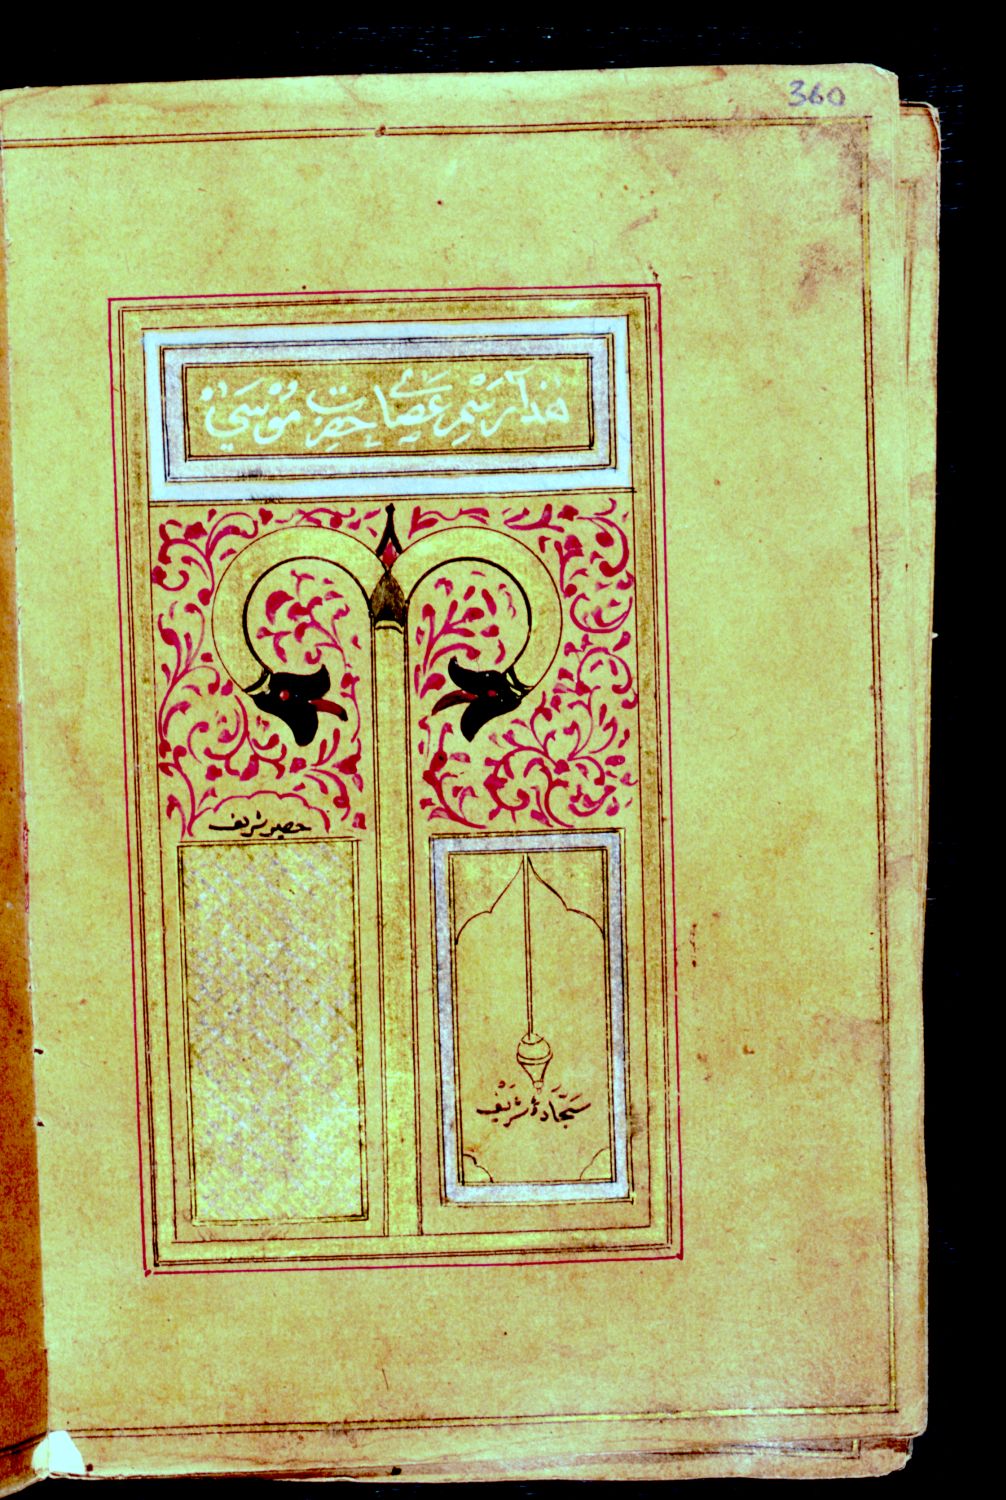 360
هٰذَا رَسْمِ عَصَايِ حَضِرَتِ مُوْسَي
حصير شريف
سَجَّادَۀ شَرِيْف